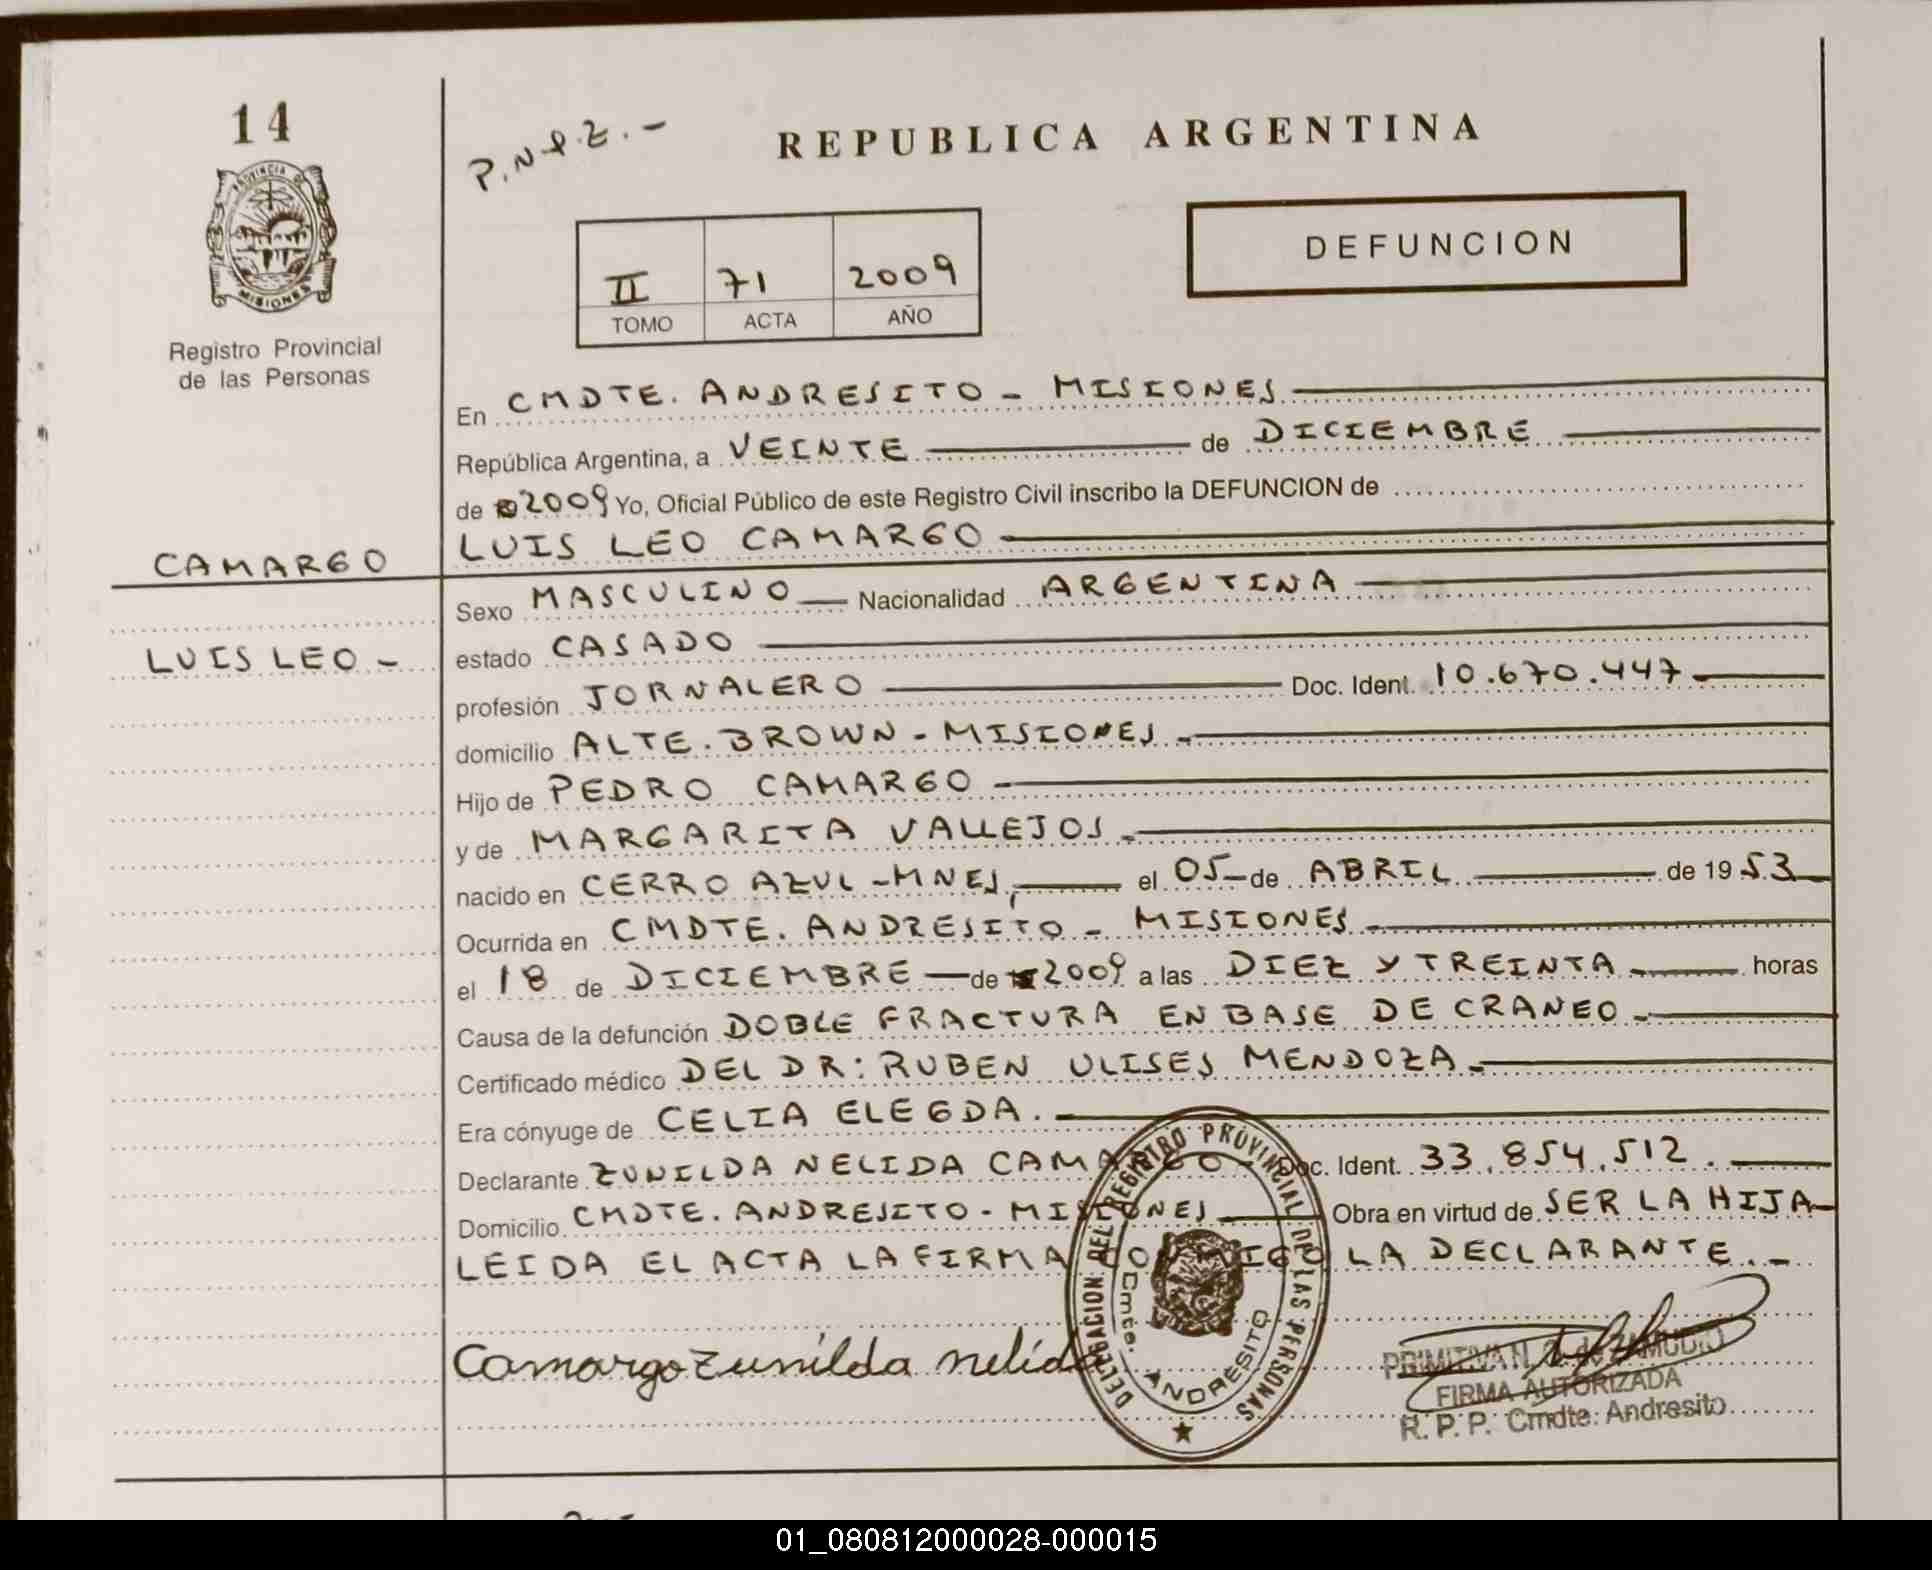 14
PROVINCIA DE
MISIONES
Registro Provincial
de las Personas
P.N.
REPUBLICA ARGENTINA
DEFUNCION
II 71 2009
TOMO ACTA AÑO
En CMDTE. ANDRESITO - MISIONES
República Argentina, a VEINTE de DICIEMBRE
de 2009 Yo, Oficial Público de este Registro Civil inscribo la DEFUNCION de
CAMARGO
LUIS LEO CAMARGO
Sexo MASCULINO Nacionalidad ARGENTINA
LUIS LEO -
estado CASADO
profesión JORNALERO Doc. Ident. 10.670.447
domicilio ALTE. BROWN - MISIONES
Hijo de PEDRO CAMARGO
y de MARGARITA VALLEJOS
nacido en CERRO AZUL - MNES, el 05 de ABRIL de 1953
Ocurrida en CMDTE. ANDRESITO - MISIONES
el 18 de DICIEMBRE de 2009 a las DIEZ Y TREINTA horas
Causa de la defunción DOBLE FRACTURA EN BASE DE CRANEO
Certificado médico DEL DR: RUBEN ULISES MENDOZA
Era cónyuge de CELIA ELEGDA.
Declarante ZUNILDA NELIDA CAMARGO Doc. Ident. 33.854.512.
Domicilio CMDTE. ANDRESITO - MISIONES Obra en virtud de SER LA HIJA
LEIDA EL ACTA LA FIRMA CONMIGO LA DECLARANTE.-
Camargo Zunilda Nelida
DELEGACION DEL REGISTRO PROVINCIAL DE LAS PERSONAS
Cmte. ANDRESITO
PRIMITIVA N. ZAMUDIO
FIRMA AUTORIZADA
R. P. P. Cmdte. Andresito
01_080812000028-000015